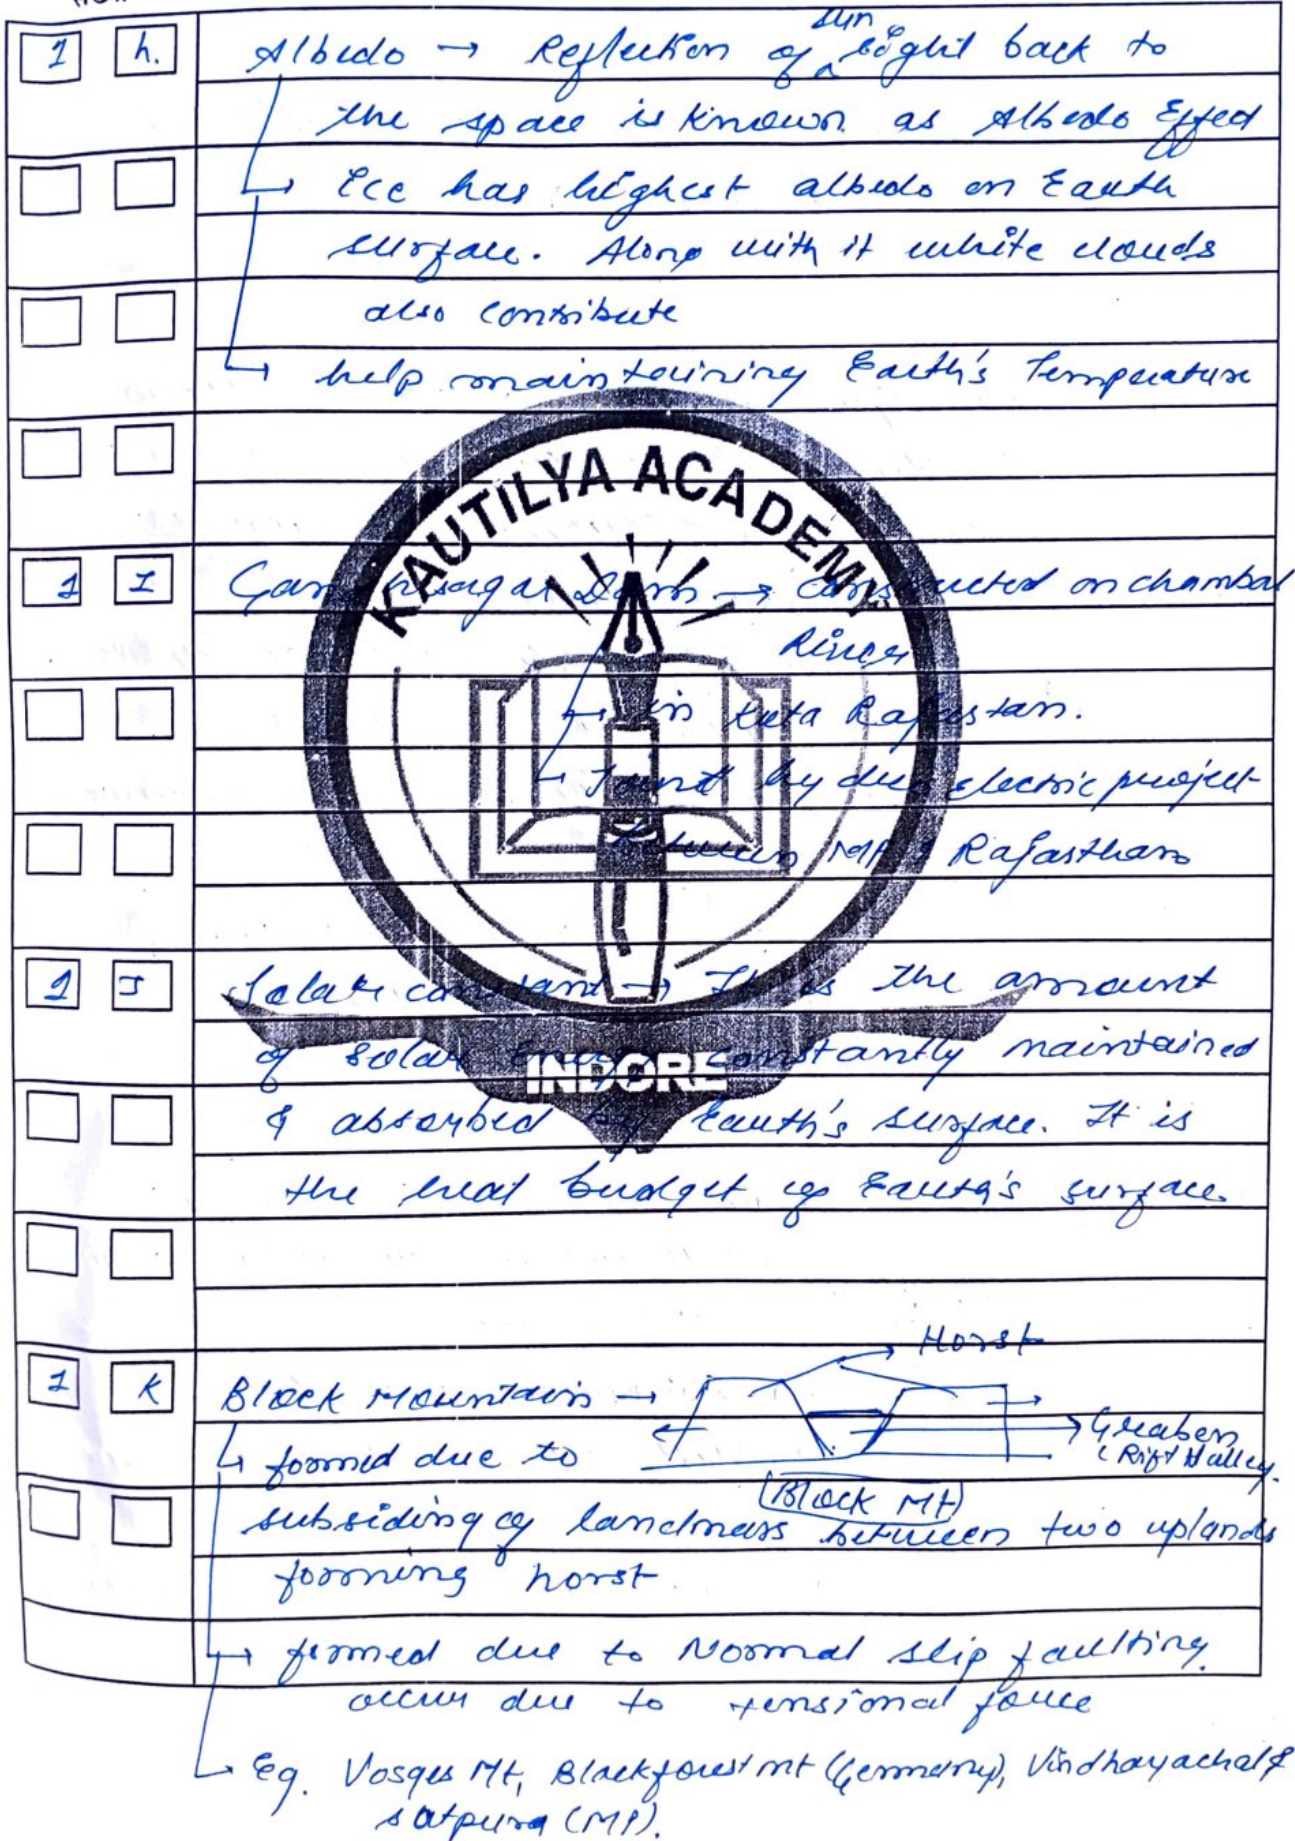 1 h. Albedo → Reflection of sun light back to
the space is known as Albedo Effect
→ Ice has highest albedo on Earth
surface. Along with it white clouds
also contribute
→ help maintaining Earth's Temperature
KAUTILYA ACADEMY
1 I Gandhisagar Dam → constructed on chambal
River
→ in Kota Rajastan.
→ Joint hydro electric project
between MP & Rajasthan
1 J Solar constant → It is the amount
of solar Energy constantly maintained
& absorbed by Earth's surface. It is
INDORE
the heat budget of Earth's surface.
→ Horst
1 K Block Mountain →
→ Graben
(Rift Valley.
→ formed due to
Block Mt
subsiding of landmass between two uplands
forming horst
→ formed due to Normal slip faulting.
occur due to tensional force
→ Eg. Vosges Mt, Blackforest mt (Germany), Vindhayachal &
satpura (MP).